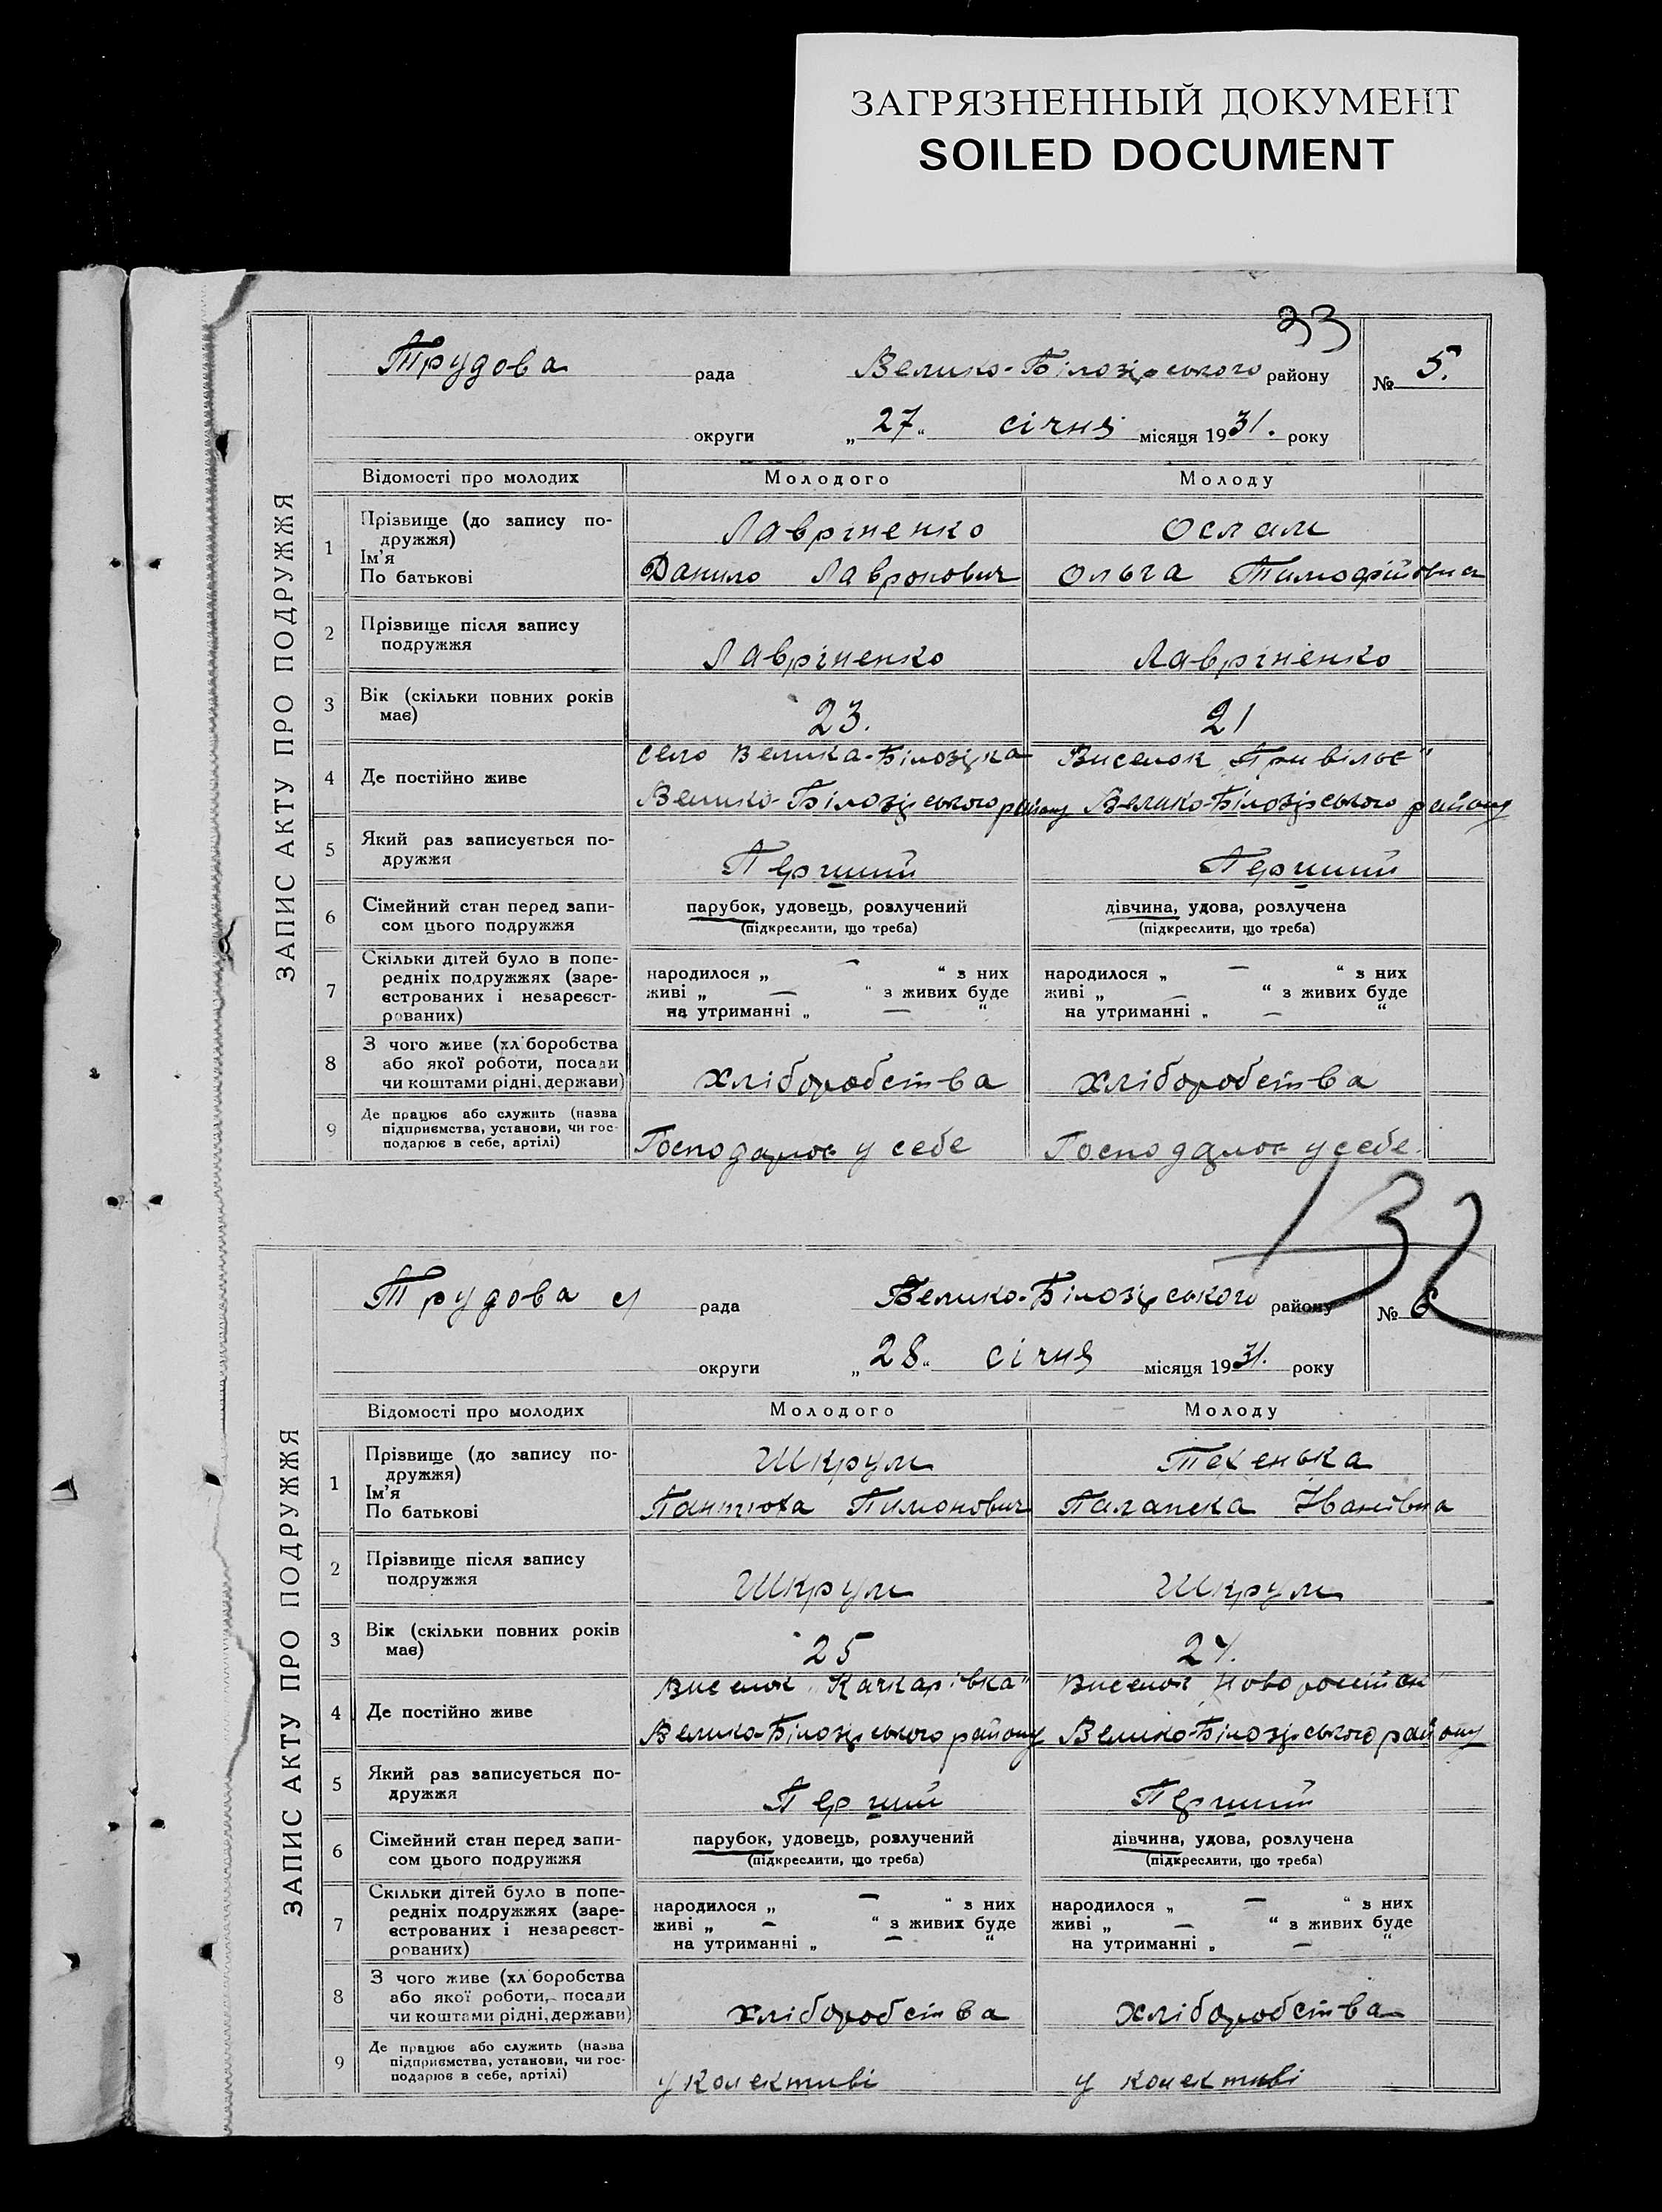 ЗАГРЯЗНЕННЫЙ ДОКУМЕНТ
SOILED DOCUMENT
33
Трудова рада Велико-Білозірського району № 5.
округи „27“ січня місяця 1931. року
ЗАПИС АКТУ ПРО ПОДРУЖЖЯ
Відомості про молодих Молодого Молоду
1 Прізвище (до запису по-
дружжя)
Ім’я
По батькові
Лавріненко Ослам
Данило Лавронович Ольга Тимофійовна
2 Прізвище після запису
подружжя
Лавріненко Лавріненко
3 Вік (скільки повних років
має)
23. 21
4 Де постійно живе
село Велика-Білозірка Виселок „Привільє“
Велико-Білозірського району Велико-Білозірського району
5 Який раз записується по-
дружжя
Перший Перший
6 Сімейний стан перед запи-
сом цього подружжя
парубок, удовець, розлучений дівчина, удова, розлучена
(підкреслити, що треба) (підкреслити, що треба)
7 Скільки дітей було в попе-
редніх подружжях (заре-
єстрованих і незареєст-
рованих)
народилося „ — “ з них народилося „ — “ з них
живі „ — “ з живих буде живі „ — “ з живих буде
на утриманні „ — “ на утриманні „ — “
8 З чого живе (хліборобства
або якої роботи, посади
чи коштами рідні, держави)
хліборобства хліборобства
9 Де працює або служить (назва
підприємства, установи, чи гос-
подарює в себе, артілі)
Господарює у себе Господарює у себе.
132
Трудова с/ рада Велико-Білозірського району № 6
округи „28“ січня місяця 1931. року
ЗАПИС АКТУ ПРО ПОДРУЖЖЯ
Відомості про молодих Молодого Молоду
1 Прізвище (до запису по-
дружжя)
Ім’я
По батькові
Шкрум
Пантюха Пимонович Палажка Іванівна
2 Прізвище після запису
подружжя
Шкрум Шкрум
3 Вік (скільки повних років
має)
25
4 Де постійно живе
Виселок „Качкарівка“ Виселок
Велико-Білозірського району Велико-Білозірського району
5 Який раз записується по-
дружжя
Перший Перший
6 Сімейний стан перед запи-
сом цього подружжя
парубок, удовець, розлучений дівчина, удова, розлучена
(підкреслити, що треба) (підкреслити, що треба)
7 Скільки дітей було в попе-
редніх подружжях (заре-
єстрованих і незареєст-
рованих)
народилося „ — “ з них народилося „ — “ з них
живі „ — “ з живих буде живі „ — “ з живих буде
на утриманні „ — “ на утриманні „ — “
8 З чого живе (хліборобства
або якої роботи, посади
чи коштами рідні, держави)
хліборобства хліборобства
9 Де працює або служить (назва
підприємства, установи, чи гос-
подарює в себе, артілі)
у колективі у колективі